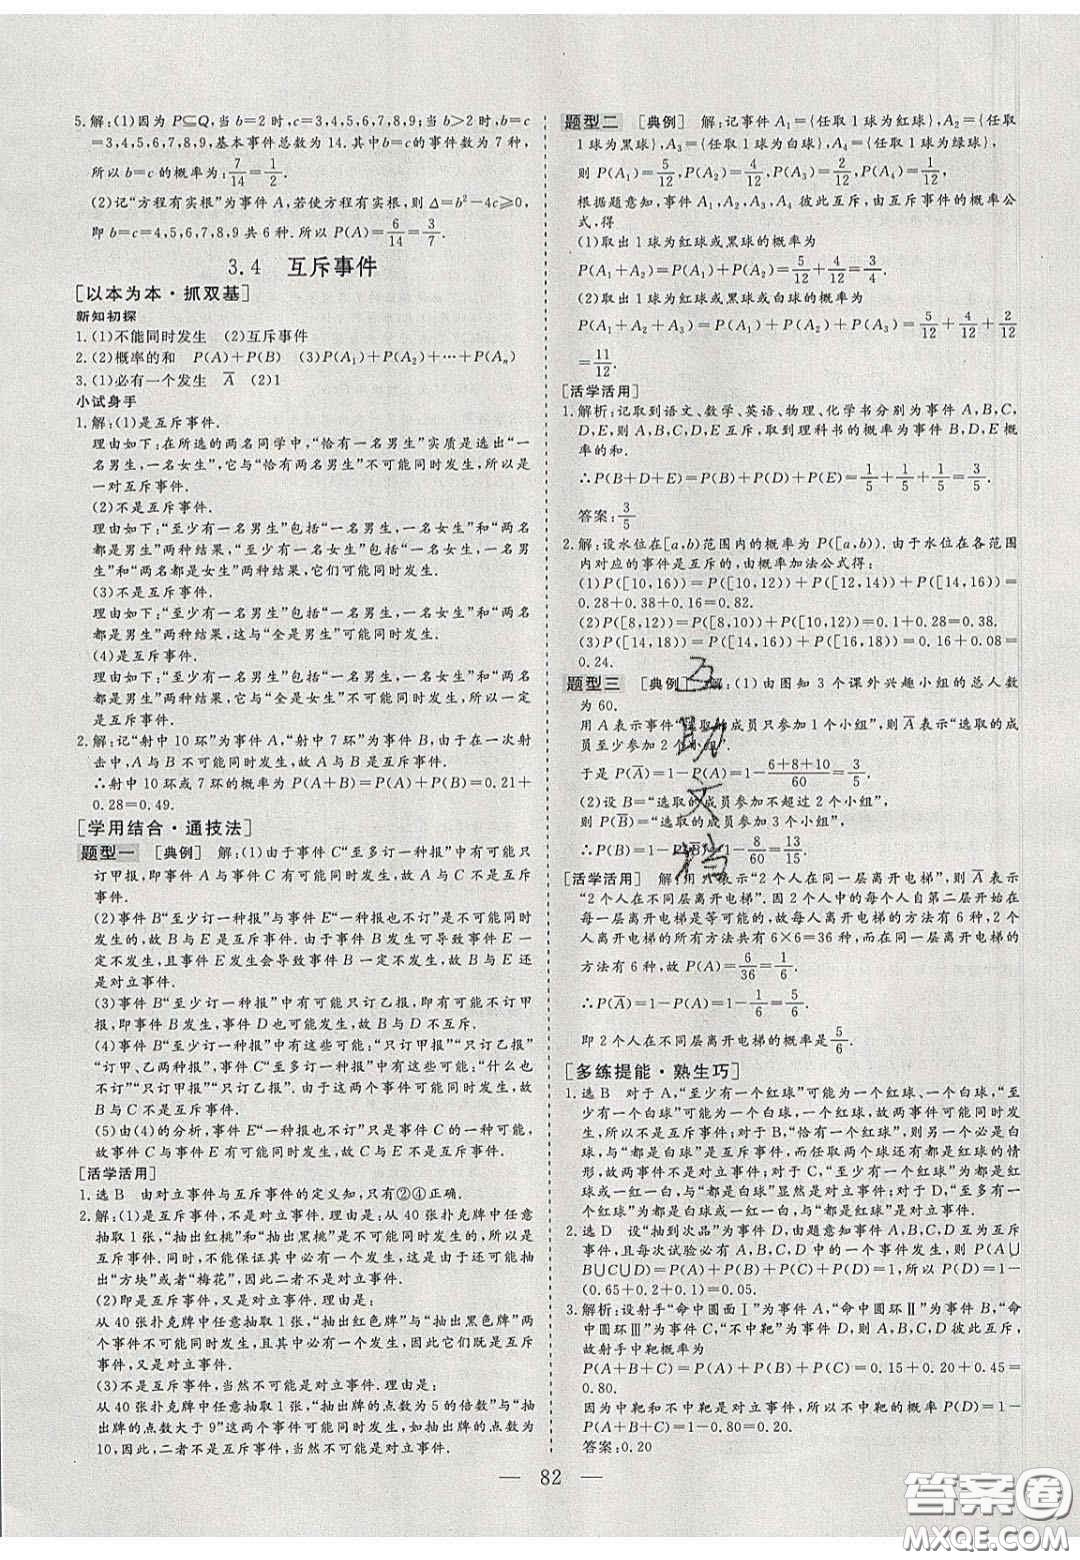 5.解:(1)因为 P⊆Q,当 b=2 时,c=3,4,5,6,7,8,9;当 b>2 时,b=c
=3,4,5,6,7,8,9,基本事件总数为 14.其中 b=c 的事件数为 7 种,
所以 b=c 的概率为:7/14=1/2.
(2)记“方程有实根”为事件 A,若使方程有实根,则 Δ=b²-4c≥0,
即 b=c=4,5,6,7,8,9 共 6 种.所以 P(A)=6/14=3/7.
3.4 互斥事件
[以本为本·抓双基]
新知初探
1.(1)不能同时发生 (2)互斥事件
2.(2)概率的和 P(A)+P(B) (3)P(A₁)+P(A₂)+…+P(Aₙ)
3.(1)必有一个发生 A̅ (2)1
小试身手
1.解:(1)是互斥事件.
理由如下:在所选的两名同学中,“恰有一名男生”实质是选出“一
名男生,一名女生”,它与“恰有两名男生”不可能同时发生,所以是
一对互斥事件.
(2)不是互斥事件.
理由如下:“至少有一名男生”包括“一名男生,一名女生”和“两名
都是男生”两种结果,“至少有一名女生”包括“一名女生,一名男生”
和“两名都是女生”两种结果,它们可能同时发生.
(3)不是互斥事件.
理由如下:“至少有一名男生”包括“一名男生,一名女生”和“两名
都是男生”两种结果,这与“全是男生”可能同时发生.
(4)是互斥事件.
理由如下:“至少有一名男生”包括“一名男生,一名女生”和“两名
都是男生”两种结果,它与“全是女生”不可能同时发生.
2.解:记“射中 10 环”为事件 A,“射中 7 环”为事件 B,由于在一次射
击中,A 与 B 不可能同时发生,故 A 与 B 是互斥事件.
∴射中 10 环或 7 环的概率为 P(A+B)=P(A)+P(B)=0.21+
0.28=0.49.
[学用结合·通技法]
题型一 [典例] 解:(1)由于事件 C“至多订一种报”中有可能只
订甲报,即事件 A 与事件 C 有可能同时发生,故 A 与 C 不是互斥
事件.
(2)事件 B“至少订一种报”与事件 E“一种报也不订”是不可能同时
发生的,故 B 与 E 是互斥事件.由于事件 B 可能导致事件 E 一
定不发生,且事件 E 发生会导致事件 B 一定不发生,故 B 与 E 还
是对立事件.
(3)事件 B“至少订一种报”中有可能只订乙报,即有可能不订甲
报,即事件 B 发生,事件 D 也可能发生,故 B 与 D 不互斥.
(4)事件 B“至少订一种报”中有这些可能:“只订甲报”“只订乙报”
“订甲、乙两种报”,事件 C“至多订一种报”中有这些可能:“什么也
不订”“只订甲报”“只订乙报”.由于这两个事件可能同时发生,故
B 与 C 不是互斥事件.
(5)由(4)的分析,事件 E“一种报也不订”只是事件 C 的一种可能,
故事件 C 与事件 E 有可能同时发生,故 C 与 E 不是互斥事件.
[活学活用]
1.选 B 由对立事件与互斥事件的定义知,只有②④正确.
2.解:(1)是互斥事件,不是对立事件.理由是:从 40 张扑克牌中任意
抽取 1 张,“抽出红桃”和“抽出黑桃”是不可能同时发生的,所以是
互斥事件.同时,不能保证其中必有一个发生,这是由于还可能抽
出“方块”或者“梅花”,因此二者不是对立事件.
(2)即是互斥事件,又是对立事件.理由是:
从 40 张扑克牌中任意抽取 1 张,“抽出红色牌”与“抽出黑色牌”两
个事件不可能同时发生,且其中必有一个发生,因此它们既是互斥
事件,又是对立事件.
(3)不是互斥事件,当然不可能是对立事件.理由是:
从 40 张扑克牌中任意抽取 1 张,“抽出牌的点数为 5 的倍数”与“抽
出牌的点数大于 9”这两个事件可能同时发生,如抽出牌的点数为
10,因此,二者不是互斥事件,当然不可能是对立事件.
题型二 [典例] 解:记事件 A₁={任取 1 球为红球},A₂={任取
1 球为黑球},A₃={任取 1 球为白球},A₄={任取 1 球为绿球},
则 P(A₁)=5/12,P(A₂)=4/12,P(A₃)=2/12,P(A₄)=1/12.
根据题意知,事件 A₁,A₂,A₃,A₄ 彼此互斥,由互斥事件的概率公
式,得
(1)取出 1 球为红球或黑球的概率为
P(A₁+A₂)=P(A₁)+P(A₂)=5/12+4/12=3/4.
(2)取出 1 球为红球或黑球或白球的概率为
P(A₁+A₂+A₃)=P(A₁)+P(A₂)+P(A₃)=5/12+4/12+2/12
=11/12.
[活学活用]
1.解析:记取到语文、数学、英语、物理、化学书分别为事件 A,B,C,
D,E,则 A,B,C,D,E 互斥,取到理科书的概率为事件 B,D,E 概
率的和.
∴P(B+D+E)=P(B)+P(D)+P(E)=1/5+1/5+1/5=3/5.
答案:3/5
2.解:设水位在[a,b)范围内的概率为 P([a,b)).由于水位在各范围
内对应的事件是互斥的,由概率加法公式得:
(1)P([10,16))=P([10,12))+P([12,14))+P([14,16))=
0.28+0.38+0.16=0.82.
(2)P([8,12))=P([8,10))+P([10,12))=0.1+0.28=0.38.
(3)P([14,18))=P([14,16))+P([16,18))=0.16+0.08=
0.24.
题型三 [典例] 解:(1)由图知 3 个课外兴趣小组的总人数
为 60.
用 A 表示事件“选取的成员只参加 1 个小组”,则 A̅ 表示“选取的成
员至少参加 2 个小组”,
于是 P(A̅)=1-P(A)=1-(6+8+10)/60=3/5.
(2)设 B=“选取的成员参加不超过 2 个小组”,
则 P(B̅)=“选取的成员参加 3 个小组”,
∴P(B)=1-P(B̅)=1-8/60=13/15.
[活学活用] 解:用 A 表示“2 个人在同一层离开电梯”,则 A̅ 表示
“2 个人在不同层离开电梯”.因 2 个人中的每个人自第二层开始在
每一层离开电梯是等可能的,故一个人离开电梯的方法有 6 种,2 个
人离开电梯的所有方法共有 6×6=36 种,而在同一层离开电梯的
方法有 6 种,故 P(A)=6/36=1/6.
∴P(A̅)=1-P(A)=1-1/6=5/6.
即 2 个人在不同层离开电梯的概率是 5/6.
[多练提能·熟生巧]
1.选 B 对于 A,“至少有一个红球”可能为一个红球、一个白球,“至
少有一个白球”可能为一个白球、一个红球,故两事件可能同时发
生,所以不是互斥事件;对于 B,“恰有一个红球”,则另一个必是白
球,与“都是白球”是互斥事件,而任选两个球还有都是红球的情
形,故两事件不是对立事件;对于 C,“至少有一个红球”为都是红球
或一红一白,与“都是白球”显然是对立事件;对于 D,“至少有一个
红球”为都是红球或一红一白,与“都是红球”可能同时发生,所以
不是互斥事件.
2.选 D 设“抽到次品”为事件 D,由题意知事件 A,B,C,D 互为互斥
事件,且每次试验必有 A,B,C,D 中的一个事件发生,则 P(A∪
B∪C∪D)=P(A)+P(B)+P(C)+P(D)=1,所以 P(D)=1-
(0.65+0.2+0.1)=0.05.
3.解析:设射手“命中圆面Ⅰ”为事件 A,“命中圆环Ⅱ”为事件 B,“命
中圆环Ⅲ”为事件 C,“不中靶”为事件 D,则 A,B,C,D 彼此互斥,
故射手中靶概率为
P(A+B+C)=P(A)+P(B)+P(C)=0.15+0.20+0.45=
0.80.
因为中靶和不中靶是对立事件,所以不中靶的概率 P(D)=1-
P(A+B+C)=1-0.80=0.20.
答案:0.20
互助文档
82
答案圈
MXQE.COM